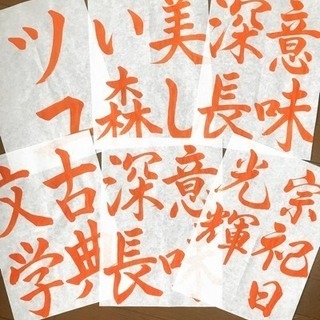 ツ
美し
い森
意味
深長
古典
文学
意味
深長
宗祀日
光輝